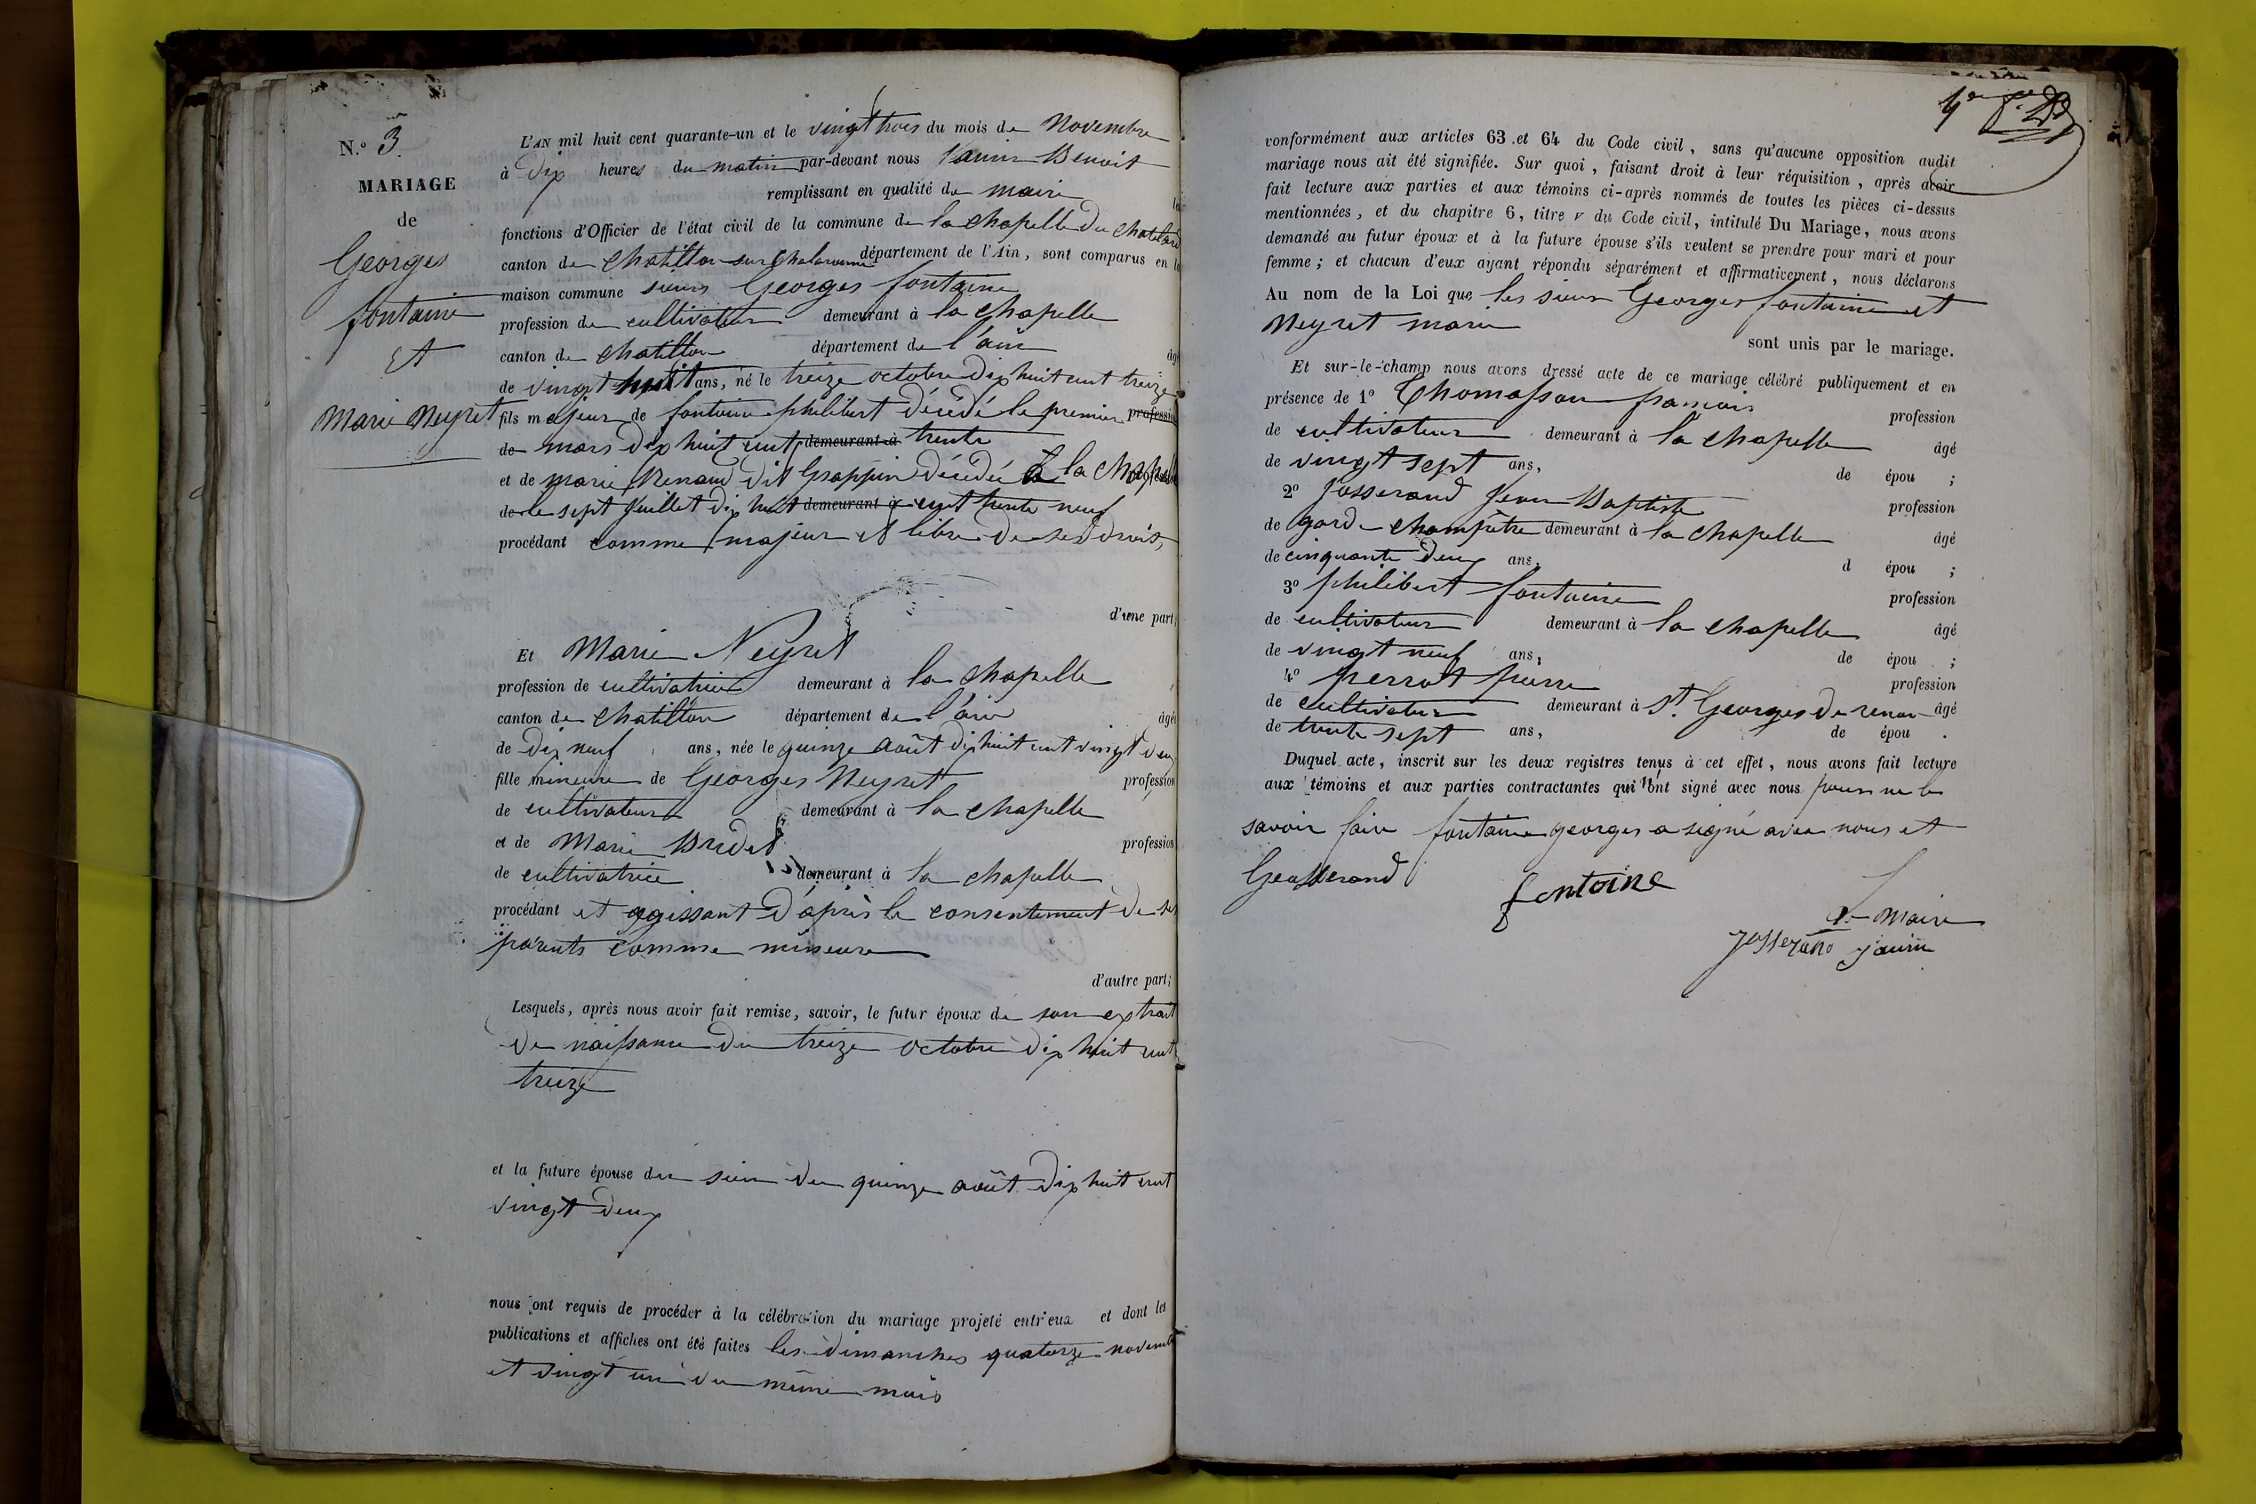 N.º 3.
MARIAGE
de
Georges
fontaine
Et
Marie Neyret
L'AN mil huit cent quarante-un et le vingt trois du mois de Novembre
à Dix heures du matin par-devant nous Janin Benoit
remplissant en qualité de maire les
fonctions d'Officier de l'état civil de la commune de la chapelle du chatelard
canton de chatillon sur chalaronne département de l'Ain, sont comparus en la
maison commune sieurs Georges fontaine
profession de cultivateur demeurant à la chapelle
canton de chatillon département de l'ain âgé
de vingt huit ans, né le treize octobre dix huit cent treize
fils majeur de fontaine philibert décédé le premier profession
de mars dix huit cent demeurant à trente
et de marie Renaud dit Grappin décédée à la chapelle
de le sept juillet dix huit demeurant à cent trente neuf
procédant comme majeur et libre de ses droits,
d'une part;
Et Marie Neyret
profession de cultivatrice demeurant à la chapelle
canton de chatillon département de l'ain âgée
de dix neuf ans, née le quinze août dix huit cent vingt deux
fille mineure de Georges Neyret profession
de cultivateur demeurant à la chapelle
et de Marie Bridet profession
de cultivatrice demeurant à la chapelle
procédant et agissant d'après le consentement de ses
parents comme mineure
d'autre part;
Lesquels, après nous avoir fait remise, savoir, le futur époux de son extrait
de naissance du treize octobre dix huit cent
treize
et la future épouse du sien du quinze août dix huit cent
vingt deux
nous ont requis de procéder à la célébration du mariage projeté entr'eux et dont les
publications et affiches ont été faites les dimanches quatorze novembre
et vingt un du même mois
conformément aux articles 63 et 64 du Code civil, sans qu'aucune opposition audit
mariage nous ait été signifiée. Sur quoi, faisant droit à leur réquisition, après avoir
fait lecture aux parties et aux témoins ci-après nommés de toutes les pièces ci-dessus
mentionnées, et du chapitre 6, titre v du Code civil, intitulé Du Mariage, nous avons
demandé au futur époux et à la future épouse s'ils veulent se prendre pour mari et pour
femme; et chacun d'eux ayant répondu séparément et affirmativement, nous déclarons
Au nom de la Loi que les sieurs Georges fontaine et
Neyret marie
sont unis par le mariage.
Et sur-le-champ nous avons dressé acte de ce mariage célébré publiquement et en
présence de 1º Thomasson françois profession
de cultivateur demeurant à la chapelle âgé
de vingt sept ans, de épou ;
2º Josserand Jean Baptiste profession
de garde champêtre demeurant à la chapelle âgé
de cinquante deux ans, d épou ;
3º philibert fontaine profession
de cultivateur demeurant à la chapelle âgé
de vingt neuf ans, de épou ;
4º perrat pierre profession
de cultivateur demeurant à St. Georges de renon âgé
de trente sept ans, de épou .
Duquel acte, inscrit sur les deux registres tenus à cet effet, nous avons fait lecture
aux témoins et aux parties contractantes qui n'ont signé avec nous pour ne le
savoir faire fontaine georges a signé avec nous et
Geosserand
fontaine
Le Maire
Josserand Janin